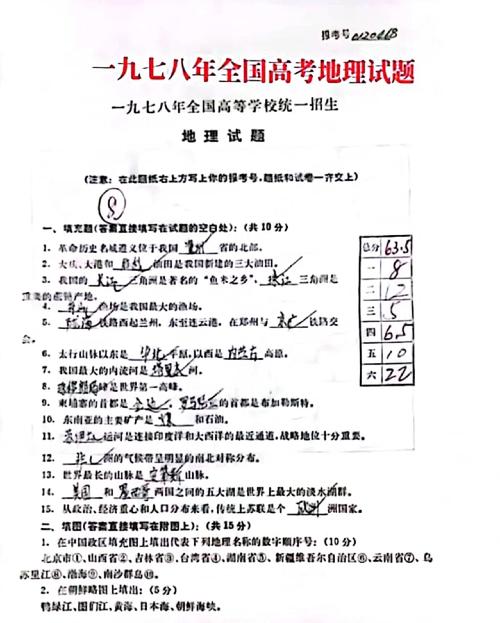 报考号 0120468
一九七八年全国高考地理试题
一九七八年全国高等学校统一招生
地理试题
(注意：在此题纸右上方写上你的报考号，题纸和试卷一齐交上)
8
一、填充题(答案直接填写在试题的空白处)：(共10分)
1. 革命历史名城遵义位于我国 贵州 省的北部。
2. 大庆、大港和 胜利 油田是我国新建的三大油田。
3. 我国的 长江 三角洲是著名的“鱼米之乡”，珠江 三角洲是
重要的蔗糖产地。
4. 渔场是我国最大的渔场。
5. 陇海 铁路西起兰州，东至连云港，在郑州与 京广 铁路交
会。
6. 太行山脉以东是 华北 平原，以西是 内蒙古 高原。
7. 我国最大的内流河是 塔里木 河。
8. 珠穆朗玛 峰是世界第一高峰。
9. 柬埔寨的首都是 金边，罗马尼亚 的首都是布加勒斯特。
10. 东南亚的主要矿产是 和石油。
11. 苏伊士 运河是连接印度洋和大西洋的最近通道，战略地位十分重要。
12. 非 洲的气候带呈明显的南北对称分布。
13. 世界最长的山脉是 安第斯 山脉。
14. 美国 和 墨西哥 两国之间的五大湖是世界上最大的淡水湖群。
15. 从政治、经济重心和人口分布来看，传统上苏联是个 欧洲 洲国家。
总分 63.5
一 8
二 12
三 5
四 6.5
五 10
六 22
二、填图(答案直接填写在附图上)：(共15分)
1. 在中国政区填充图上填出代表下列地理名称的数字顺序号：(10分)
北京市①、山西省②、吉林省③、台湾省④、湖南省⑤、新疆维吾尔自治区⑥、云南省⑦、乌
苏里江⑧、渤海⑨、南沙群岛⑩。
2. 在朝鲜略图上填出：(5分)
鸭绿江、图们江、黄海、日本海、朝鲜海峡。